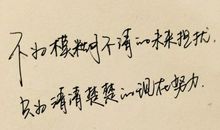 不为模糊不清的未来担扰
只为清清楚楚的现在努力.